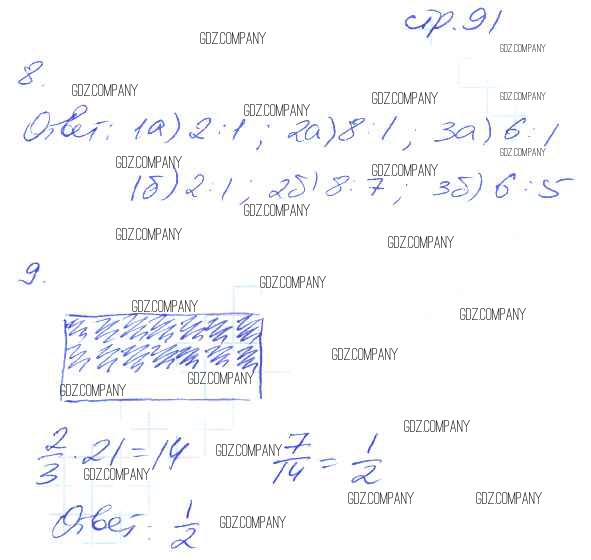 стр. 91
GDZ.COMPANY
GDZ.COMPANY
8.
GDZ.COMPANY
GDZ.COMPANY
GDZ.COMPANY
GDZ.COMPANY
Ответ: 1а) 2:1; 2а) 8:1; 3а) 6:1
GDZ.COMPANY
GDZ.COMPANY
GDZ.COMPANY
1б) 2:1; 2б) 8:7; 3б) 6:5
GDZ.COMPANY
GDZ.COMPANY
GDZ.COMPANY
9.
GDZ.COMPANY
GDZ.COMPANY
GDZ.COMPANY
GDZ.COMPANY
GDZ.COMPANY
GDZ.COMPANY
GDZ.COMPANY
2/3 · 21 = 14 7/14 = 1/2
GDZ.COMPANY
GDZ.COMPANY
GDZ.COMPANY
GDZ.COMPANY
Ответ: 1/2
GDZ.COMPANY